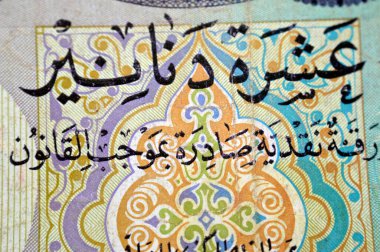 عَشَرَة دَنَانِيْر
وَرَقَةٌ نَقْدِيَة صَادِرَة بِمَوجَب القَانُون